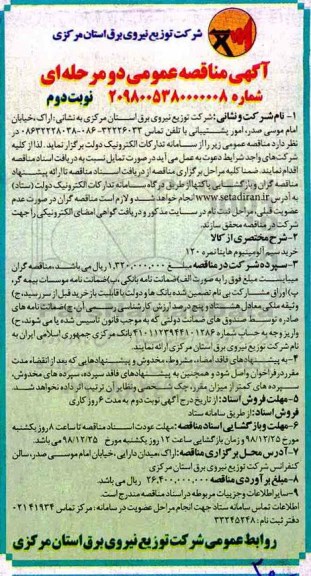 شرکت توزیع نیروی برق استان مرکزی
آگهی مناقصه عمومی دو مرحله ای
شماره ۲۰۹۸۰۰۵۳۸۰۰۰۰۰۰۸ نوبت دوم
۱- نام شرکت و نشانی: شرکت توزیع نیروی برق استان مرکزی به نشانی: اراک، خیابان
امام موسی صدر، امور پشتیبانی با تلفن تماس ۳۲۲۲۶۰۳۲-۰۸۶ ۰۸۶۳۲۲۲۸۰۳۸ در
نظر دارد مناقصه عمومی زیر را از سامانه تدارکات الکترونیک دولت برگزار نماید. لذا از کلیه
شرکت های واجد شرایط دعوت به عمل می آید در صورت تمایل نسبت به دریافت اسناد مناقصه
اقدام نمایند. ضمنا کلیه مراحل برگزاری مناقصه از دریافت اسناد مناقصه تا ارائه پیشنهاد
مناقصه گران و بازگشایی پاکتها از طریق درگاه سامانه تدارکات الکترونیک دولت (ستاد)
به آدرس www.setadiran.ir انجام خواهد شد و لازم است مناقصه گران در صورت عدم
عضویت قبلی، مراحل ثبت نام در سایت مذکور و دریافت گواهی امضای الکترونیکی را جهت
شرکت در مناقصه محقق سازند.
۲- شرح مختصری از کالا
خرید سیم آلومینیوم هاینا نمره ۱۲۰
۳- سپرده شرکت در مناقصه مبلغ ۱,۳۲۰,۰۰۰,۰۰۰ ریال می باشد، مناقصه گران
میبایست مبلغ فوق را به صورت الف) ضمانت نامه بانکی، ب) ضمانت نامه موسسات بیمه گر،
پ) اوراق مشارکت بی نام تضمین شده بانک ها و دولت با قابلیت بازخرید قبل از سررسید، ج)
وثیقه ملکی معادل هشتاد و پنج درصد ارزش کارشناسی رسمی آن، چ) ضمانت نامه های
صادره توسط صندوق های ضمانت دولتی که به موجب قانون تاسیس شده یا می شوند، ح)
واریز وجه به حساب شماره ۴۱۰۱۱۲۳۹۴۴۱۰۱۲۸۶ بانک مرکزی جمهوری اسلامی ایران به
نام شرکت توزیع نیروی برق استان مرکزی ارائه نمایند.
۴- به پیشنهادهای فاقد امضاء، مشروط، مخدوش و پیشنهادهایی که بعد از انقضاء مدت
مقرر در فراخوان واصل شود و همچنین به پیشنهادهای فاقد سپرده، سپرده های مخدوش،
سپرده های کمتر از میزان مقرر، چک شخصی و نظایر آن ترتیب اثر داده نخواهد شد.
۵- مهلت فروش اسناد: از تاریخ درج آگهی نوبت دوم به مدت ۶ روز کاری
فروش اسناد: از طریق سامانه ستاد
۶- مهلت و بازگشایی اسناد مناقصه: مهلت عودت اسناد مناقصه تا ساعت ۸ روز یکشنبه
مورخ ۹۸/۱۲/۲۵ و زمان بازگشایی ساعت ۱۲ روز یکشنبه مورخ ۹۸/۱۲/۲۵ می باشد.
۷- آدرس محل برگزاری مناقصه: اراک، میدان دارایی، خیابان امام موسی صدر، سالن
کنفرانس شرکت توزیع نیروی برق استان مرکزی
۸- مبلغ برآوردی مناقصه ۲۶,۴۰۰,۰۰۰,۰۰۰ ریال می باشد.
۹- سایر اطلاعات و جزییات مربوطه در اسناد مناقصه مندرج است.
اطلاعات تماس سامانه ستاد جهت انجام مراحل عضویت در سامانه: مرکز تماس ۴۱۹۳۴-۰۲۱
دفتر ثبت نام: ۳۳۲۴۵۲۴۸
روابط عمومی شرکت توزیع نیروی برق استان مرکزی